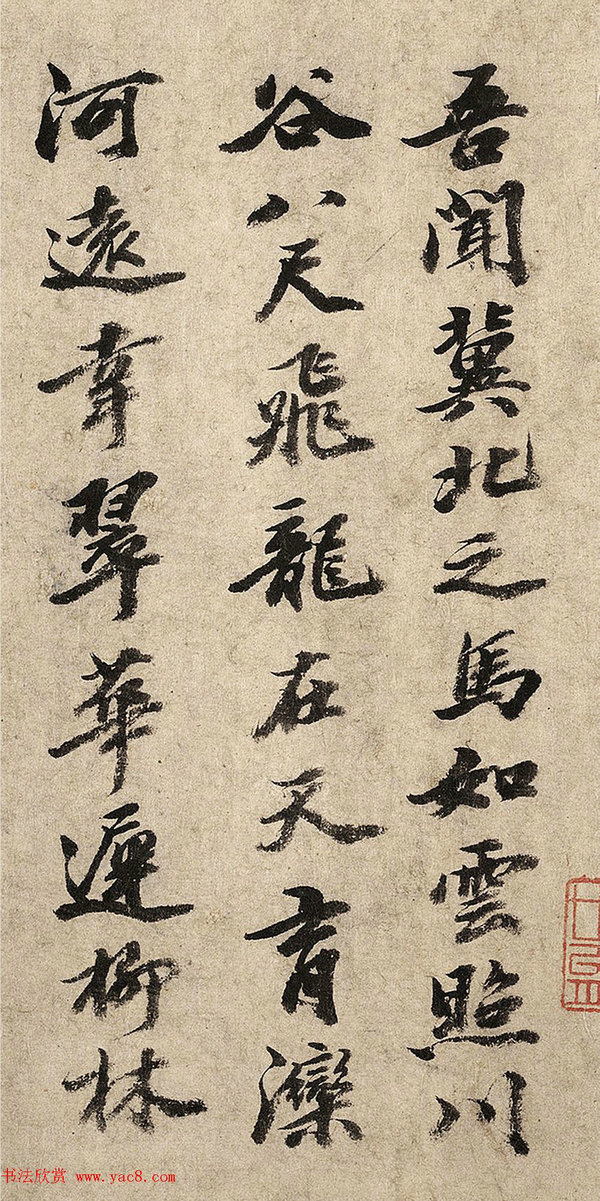 吾聞冀北之馬如雲照川
谷八尺飛龍在天育灤
河遠幸翠華柳林
书法欣赏 www.yac8.com